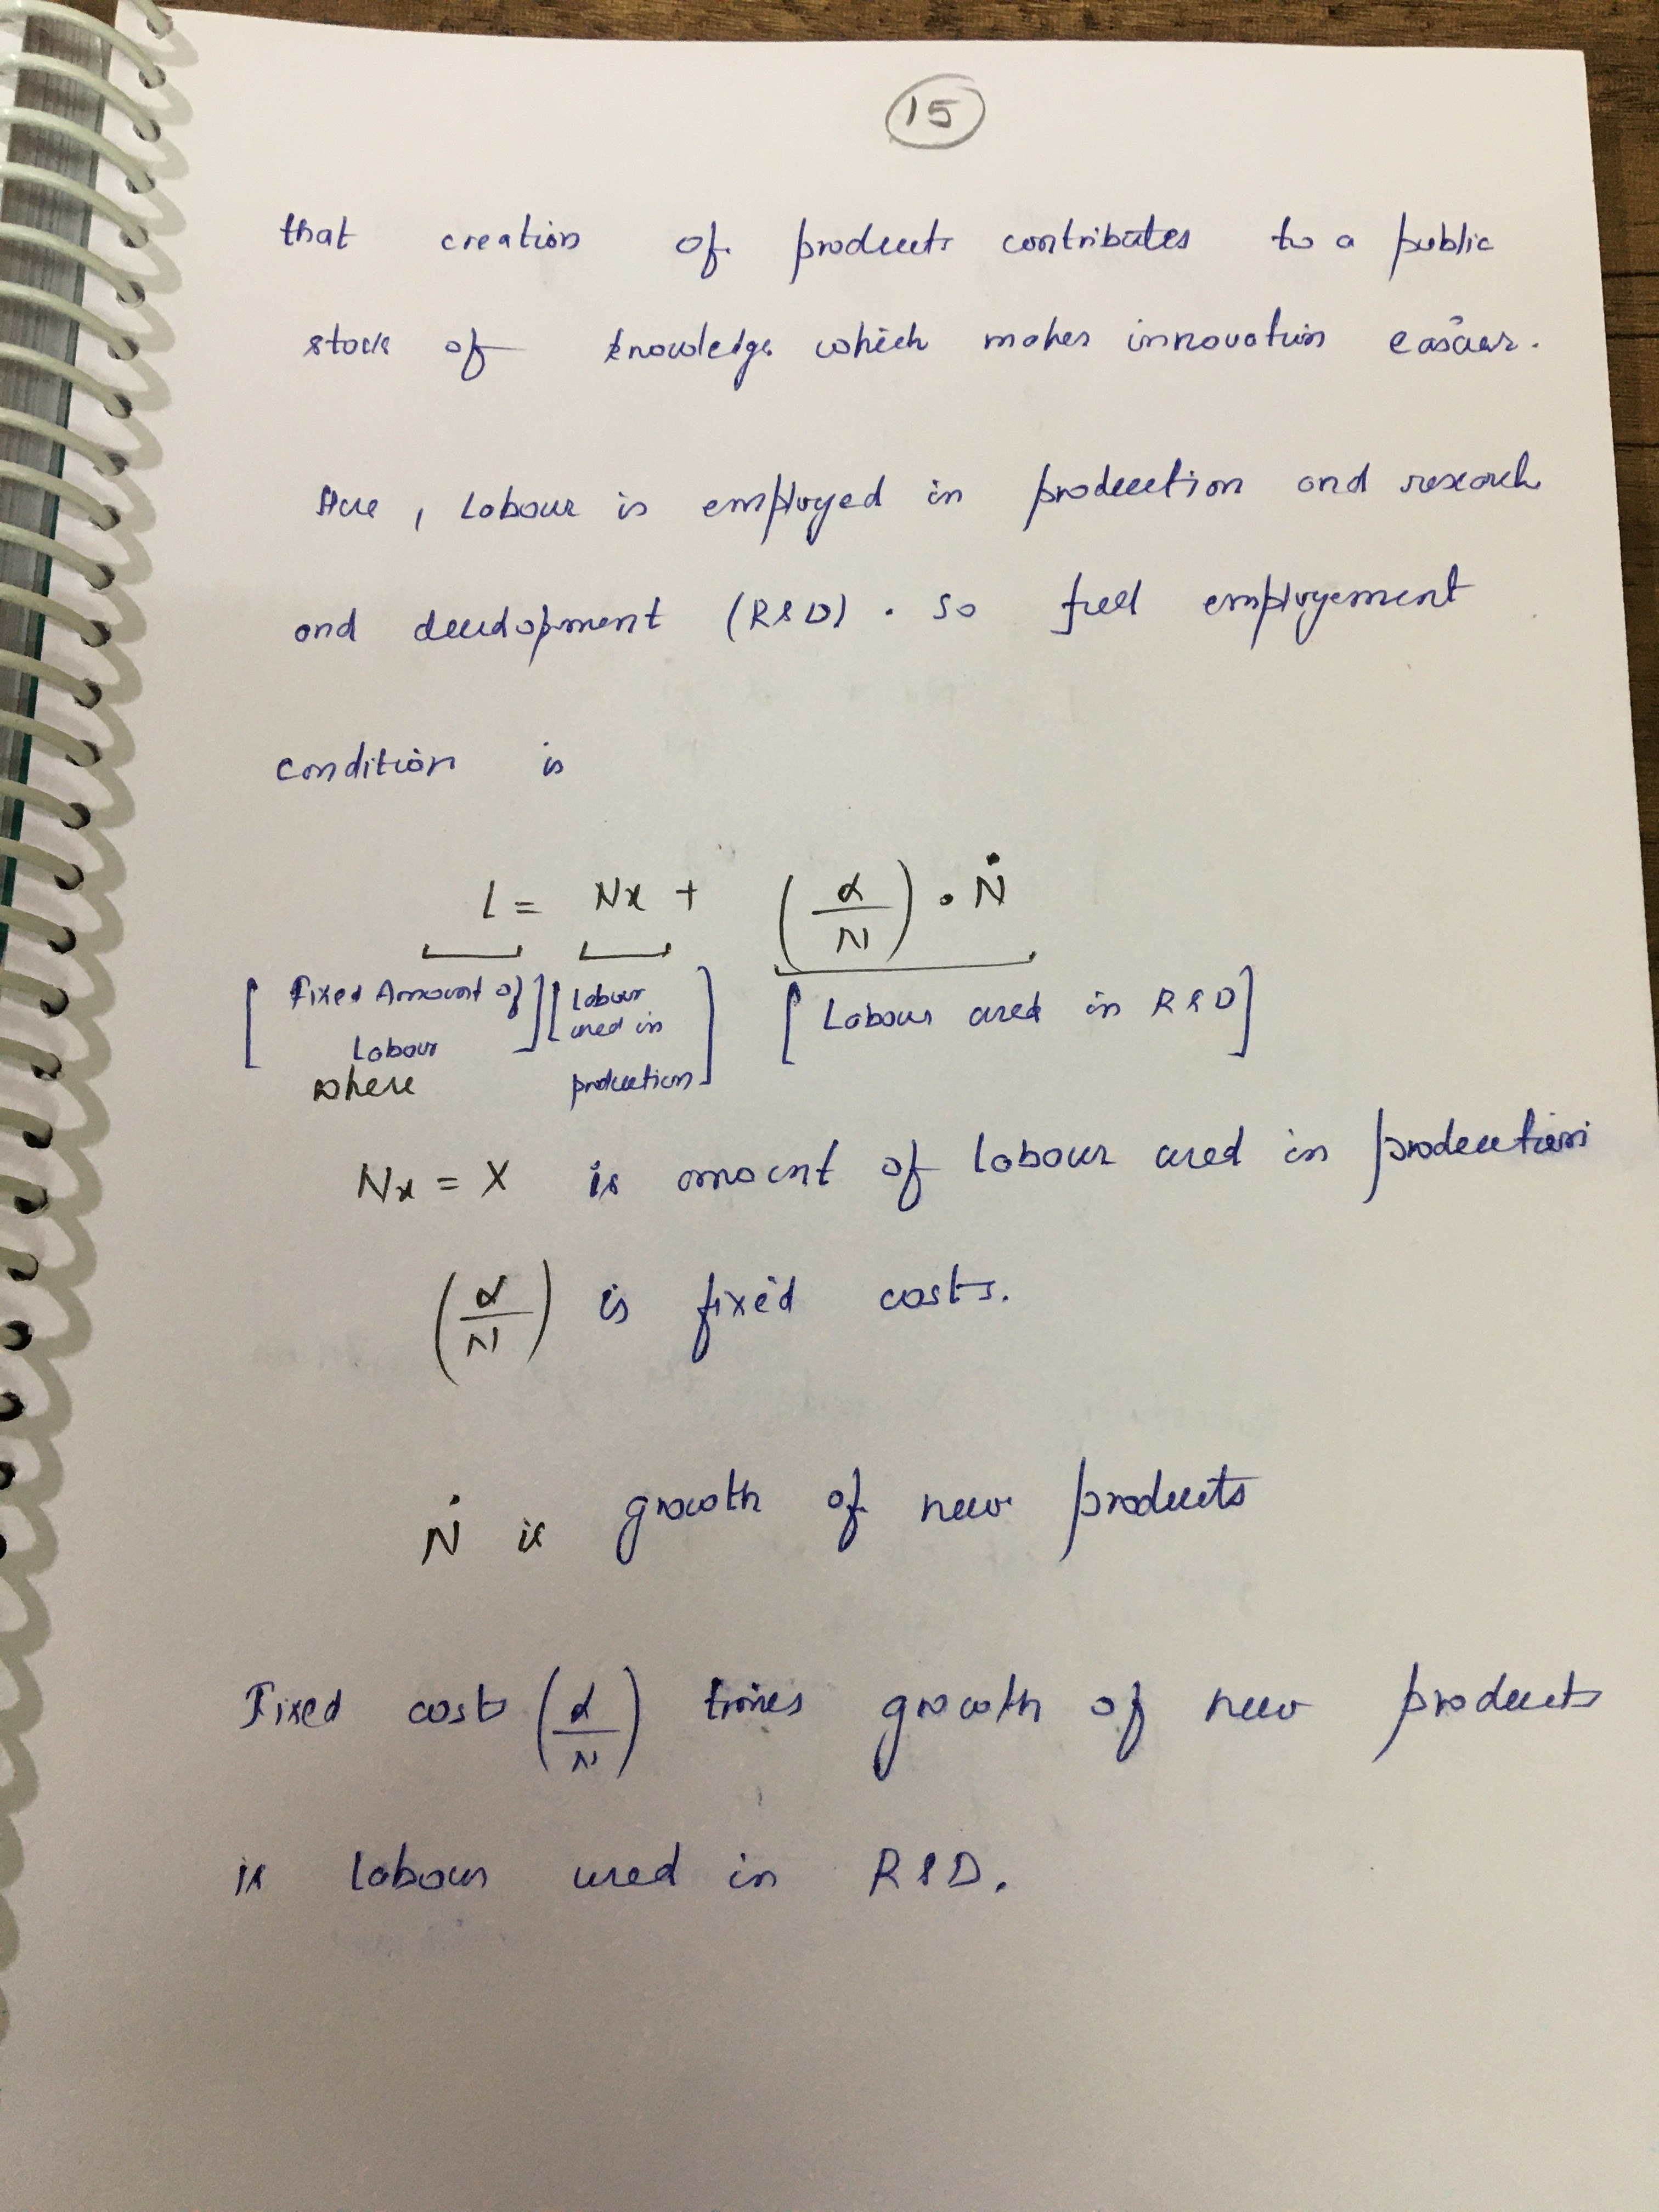 15
that creation of products contributes to a public
stock of knowledge which makes innovation easier.
Here, Labour is employed in production and research
and development (R&D). So full employement
condition is
L = Nx + (α/N) · Ṅ
[Fixed Amount of Labour] [Labour used in production] [Labour used in R&D]
where
Nx = X is amount of labour used in production
(α/N) is fixed costs.
Ṅ is growth of new products
Fixed cost (α/N) times growth of new products
is labour used in R&D.